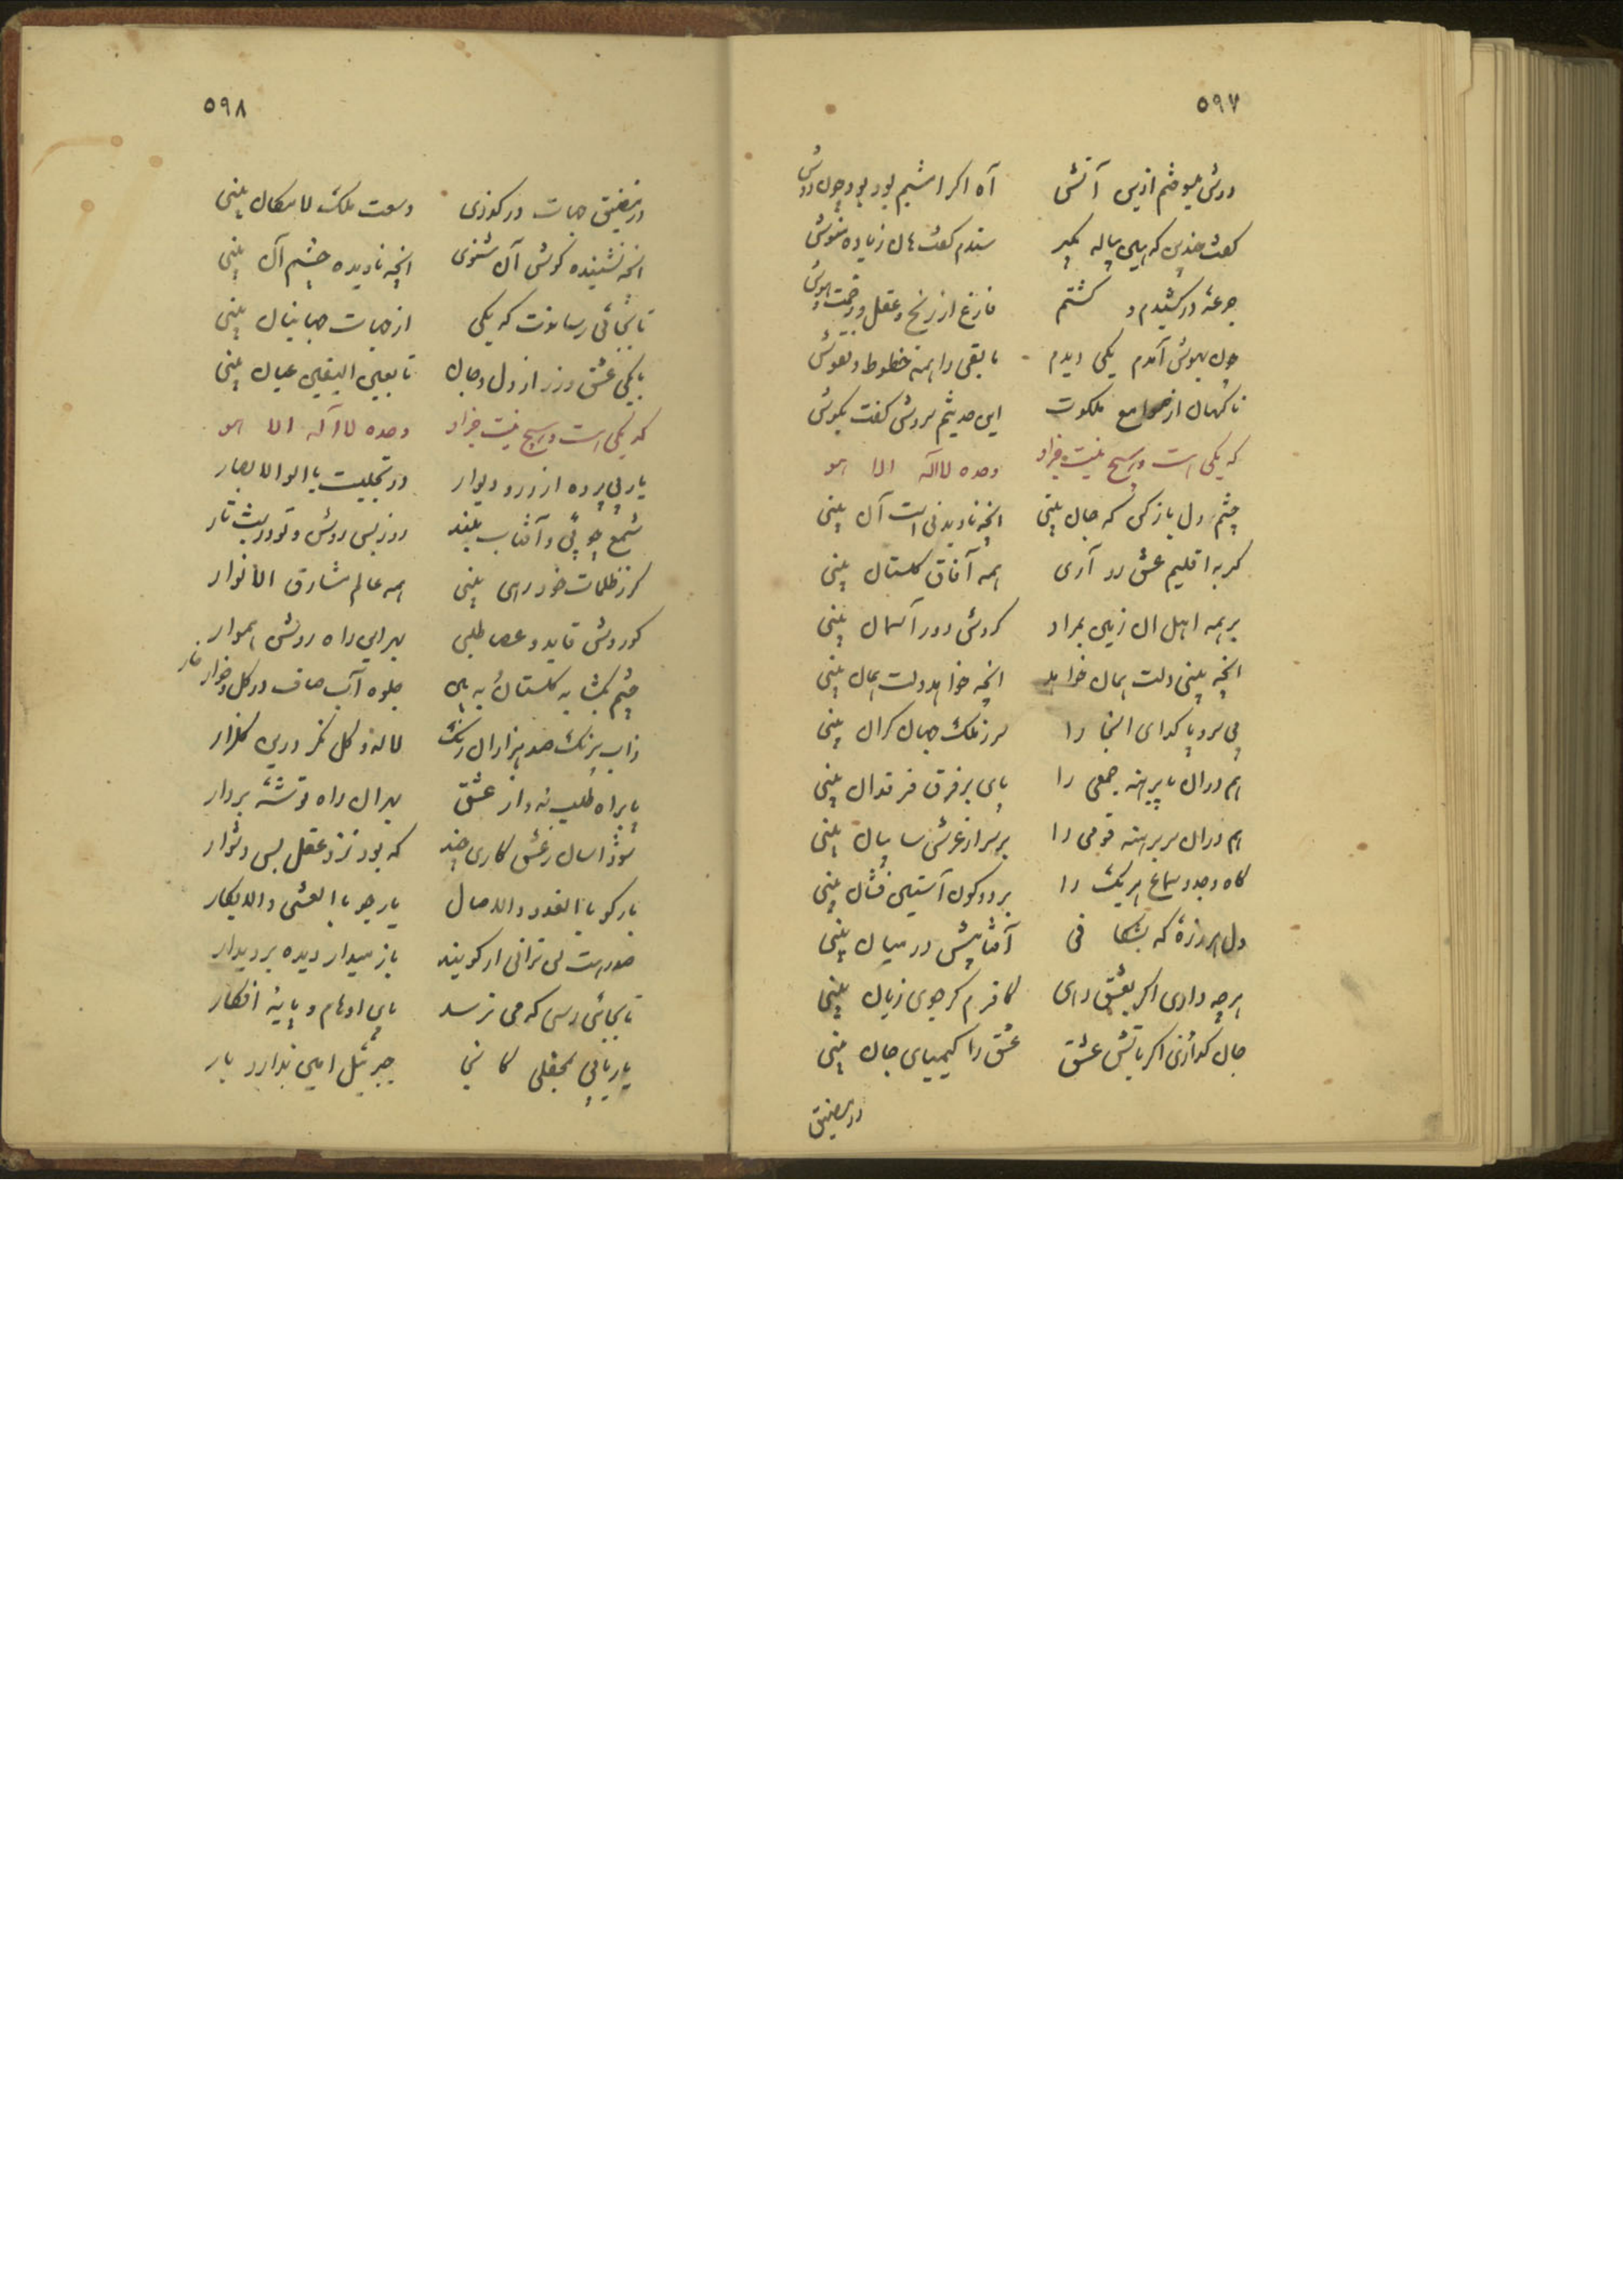 ۵۹۷
دوش میسوختم ازین آتش آه اگر امشبم بود چون دوش
گفت هین که این پیاله بگیر ستدم گفت هان زیاده منوش
جرعهٔ درکشیدم و گشتم فارغ از رنج عقل و زحمت هوش
چون بهوش آمدم یکی دیدم مابقی را همه خطوط و نقوش
ناگهان از صوامع ملکوت این حدیثم سروش گفت بگوش
که یکی است و هیچ نیست جز او وحده لااله الا هو
چشم دل باز کن که جان بینی آنچه نادیدنی است آن بینی
گر به اقلیم عشق رو آری همه آفاق گلستان بینی
بر همه اهل آن زمین بمراد گردش دور آسمان بینی
آنچه بینی دلت همان خواهد آنچه خواهد دلت همان بینی
بی سر و پا گدای آنجا را سر ز ملک جهان گران بینی
هم در آن پا برهنه جمعی را پای بر فرق فرقدان بینی
هم در آن سر برهنه قومی را بر سر از عرش سایبان بینی
گاه وجد و سماع هر یک را بر دو کون آستین فشان بینی
دل هر ذرهٔ که بشکافی آفتابیش در میان بینی
هر چه داری اگر بعشق دهی کافرم گر جوی زیان بینی
جان گدازی اگر باتش عشق عشق را کیمیای جان بینی
در مضیق
۵۹۸
در مضیق جهات درگذری وسعت ملک لامکان بینی
آنچه نشنیده گوش آن شنوی آنچه نادیده چشم آن بینی
تا بجائی رساندت که یکی از جهات جهانیان بینی
با یکی عشق ورز از دل و جان تا بعین الیقین عیان بینی
که یکی است و هیچ نیست جز او وحده لااله الا هو
یار بی پرده از در و دیوار در تجلیست یا اولو الابصار
شمع جوئی و آفتاب بلند روز بس روشن و تو در شب تار
گر ز ظلمات خود رهی بینی همه عالم مشارق الانوار
کوروش قاید و عصا طلبی بهر این راه روشن هموار
چشم بگشا به گلستان و ببین جلوه آب صاف در گل و خار
ز آب بیرنگ صد هزاران رنگ لاله و گل نگر درین گلزار
پا براه طلب نه و از عشق بهر آن راه توشهٔ بردار
شود آسان ز عشق کاری چند که بود نزد عقل بس دشوار
یار گو بالغدو والاصال یار جو بالعشی والابکار
صد رهت لن ترانی ار گویند باز میدار دیده بر دیدار
تا بجائی رسی که می نرسد پای اوهام و پایه افکار
یار یابی بمحفلی کانجا جبرئیل امین ندارد بار